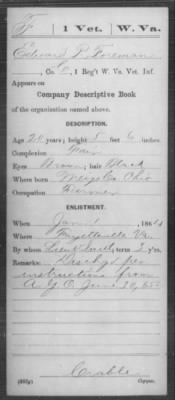 F | 1 Vet. | W. Va.
Edward P. Foreman
, Co. , 1 Reg't W. Va. Vet. Inf.
Appears on
Company Descriptive Book
of the organization named above.
DESCRIPTION.
Age 20 years; height 5 feet 6 inches.
Complexion Fair
Eyes Brown; hair Black
Where born Meigs Co. Ohio
Occupation Farmer
ENLISTMENT.
When Jan 1, 1864
Where Fayetteville Va.
By whom Lieut ; term 3 y'rs.
Remarks: Disch'gd per
instructions from
A. G. O. June 20, 65
Crable
Copyist.